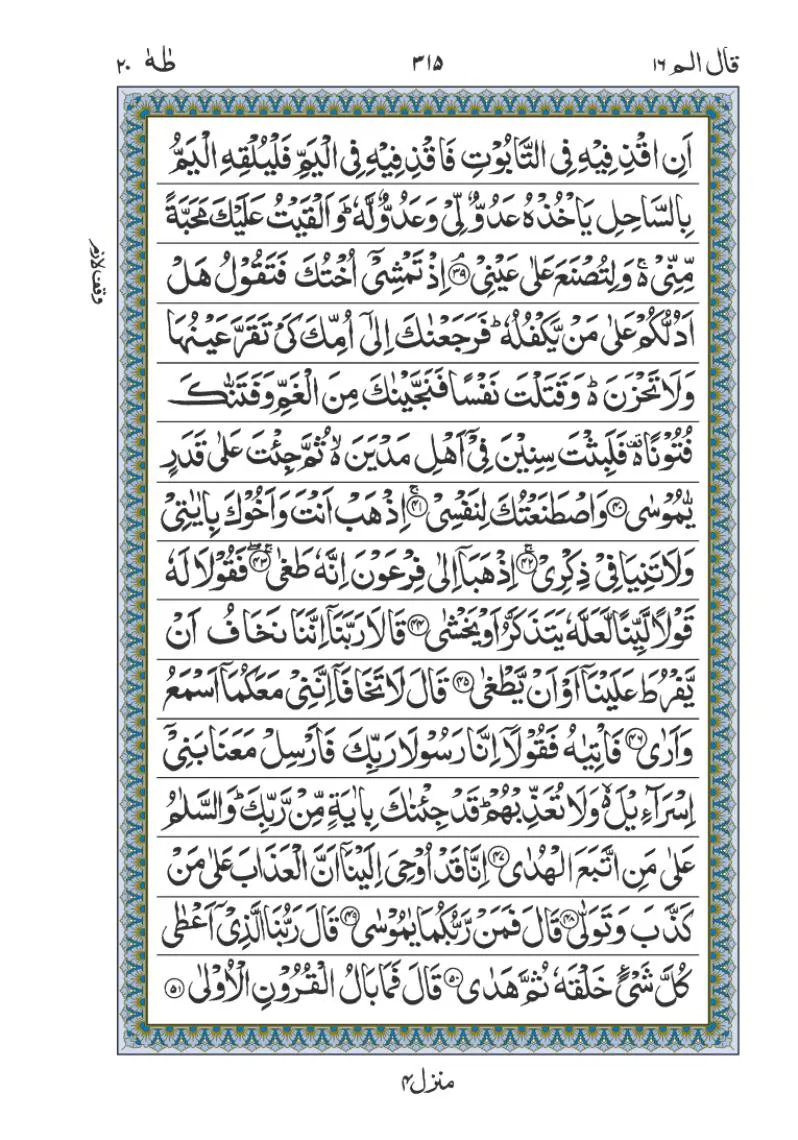 قال الم ١٦ ٣١٥ طٰهٰ ٢٠
اَنِ اقْذِفِیْهِ فِی التَّابُوْتِ فَاقْذِفِیْهِ فِی الْیَمِّ فَلْیُلْقِهِ الْیَمُّ
بِالسَّاحِلِ یَاْخُذْهُ عَدُوٌّ لِّیْ وَعَدُوٌّ لَّهٗ ؕ وَاَلْقَیْتُ عَلَیْكَ مَحَبَّةً
وقف لازم
مِّنِّیْ ۚ۬ وَلِتُصْنَعَ عَلٰی عَیْنِیْ ۘ﴿۳۹﴾ اِذْ تَمْشِیْۤ اُخْتُكَ فَتَقُوْلُ هَلْ
اَدُلُّكُمْ عَلٰی مَنْ یَّكْفُلُهٗ ؕ فَرَجَعْنٰكَ اِلٰۤی اُمِّكَ كَیْ تَقَرَّ عَیْنُهَا
وَلَا تَحْزَنَ ؕ۬ وَقَتَلْتَ نَفْسًا فَنَجَّیْنٰكَ مِنَ الْغَمِّ وَفَتَنّٰكَ
فُتُوْنًا ۫۬ فَلَبِثْتَ سِنِیْنَ فِیْۤ اَهْلِ مَدْیَنَ ۙ۬ ثُمَّ جِئْتَ عَلٰی قَدَرٍ
یّٰمُوْسٰی ﴿۴۰﴾ وَاصْطَنَعْتُكَ لِنَفْسِیْ ۚ﴿۴۱﴾ اِذْهَبْ اَنْتَ وَاَخُوْكَ بِاٰیٰتِیْ
وَلَا تَنِیَا فِیْ ذِكْرِیْ ۚ﴿۴۲﴾ اِذْهَبَاۤ اِلٰی فِرْعَوْنَ اِنَّهٗ طَغٰی ۚۖ﴿۴۳﴾ فَقُوْلَا لَهٗ
قَوْلًا لَّیِّنًا لَّعَلَّهٗ یَتَذَكَّرُ اَوْ یَخْشٰی ﴿۴۴﴾ قَالَا رَبَّنَاۤ اِنَّنَا نَخَافُ اَنْ
یَّفْرُطَ عَلَیْنَاۤ اَوْ اَنْ یَّطْغٰی ﴿۴۵﴾ قَالَ لَا تَخَافَاۤ اِنَّنِیْ مَعَكُمَاۤ اَسْمَعُ
وَاَرٰی ﴿۴۶﴾ فَاْتِیٰهُ فَقُوْلَاۤ اِنَّا رَسُوْلَا رَبِّكَ فَاَرْسِلْ مَعَنَا بَنِیْۤ
اِسْرَآءِیْلَ ۙ۬ وَلَا تُعَذِّبْهُمْ ؕ قَدْ جِئْنٰكَ بِاٰیَةٍ مِّنْ رَّبِّكَ ؕ وَالسَّلٰمُ
عَلٰی مَنِ اتَّبَعَ الْهُدٰی ﴿۴۷﴾ اِنَّا قَدْ اُوْحِیَ اِلَیْنَاۤ اَنَّ الْعَذَابَ عَلٰی مَنْ
كَذَّبَ وَتَوَلّٰی ﴿۴۸﴾ قَالَ فَمَنْ رَّبُّكُمَا یٰمُوْسٰی ﴿۴۹﴾ قَالَ رَبُّنَا الَّذِیْۤ اَعْطٰی
كُلَّ شَیْءٍ خَلْقَهٗ ثُمَّ هَدٰی ﴿۵۰﴾ قَالَ فَمَا بَالُ الْقُرُوْنِ الْاُوْلٰی ﴿۵۱﴾
منزل ۴